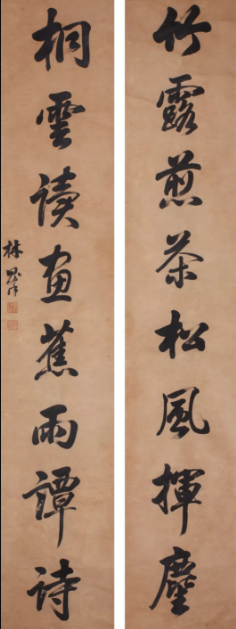 竹露煎茶松風揮麈
桐雲讀画蕉雨譚詩
林則徐